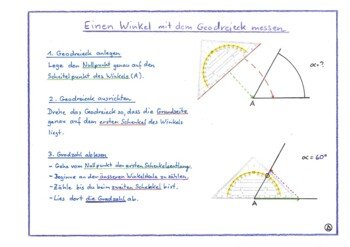 Einen Winkel mit dem Geodreieck messen.
1. Geodreieck anlegen
Lege den Nullpunkt genau auf den
Scheitelpunkt des Winkels (A).
α=?
A
2. Geodreieck ausrichten
Drehe das Geodreieck so, dass die Grundseite
genau auf dem ersten Schenkel des Winkels
liegt.
3. Gradzahl ablesen
- Gehe vom Nullpunkt den ersten Schenkel entlang.
- Beginne an der äusseren Winkelskala zu zählen.
- Zähle bis du beim zweiten Schenkel bist.
- Lies dort die Gradzahl ab.
α=60°
A